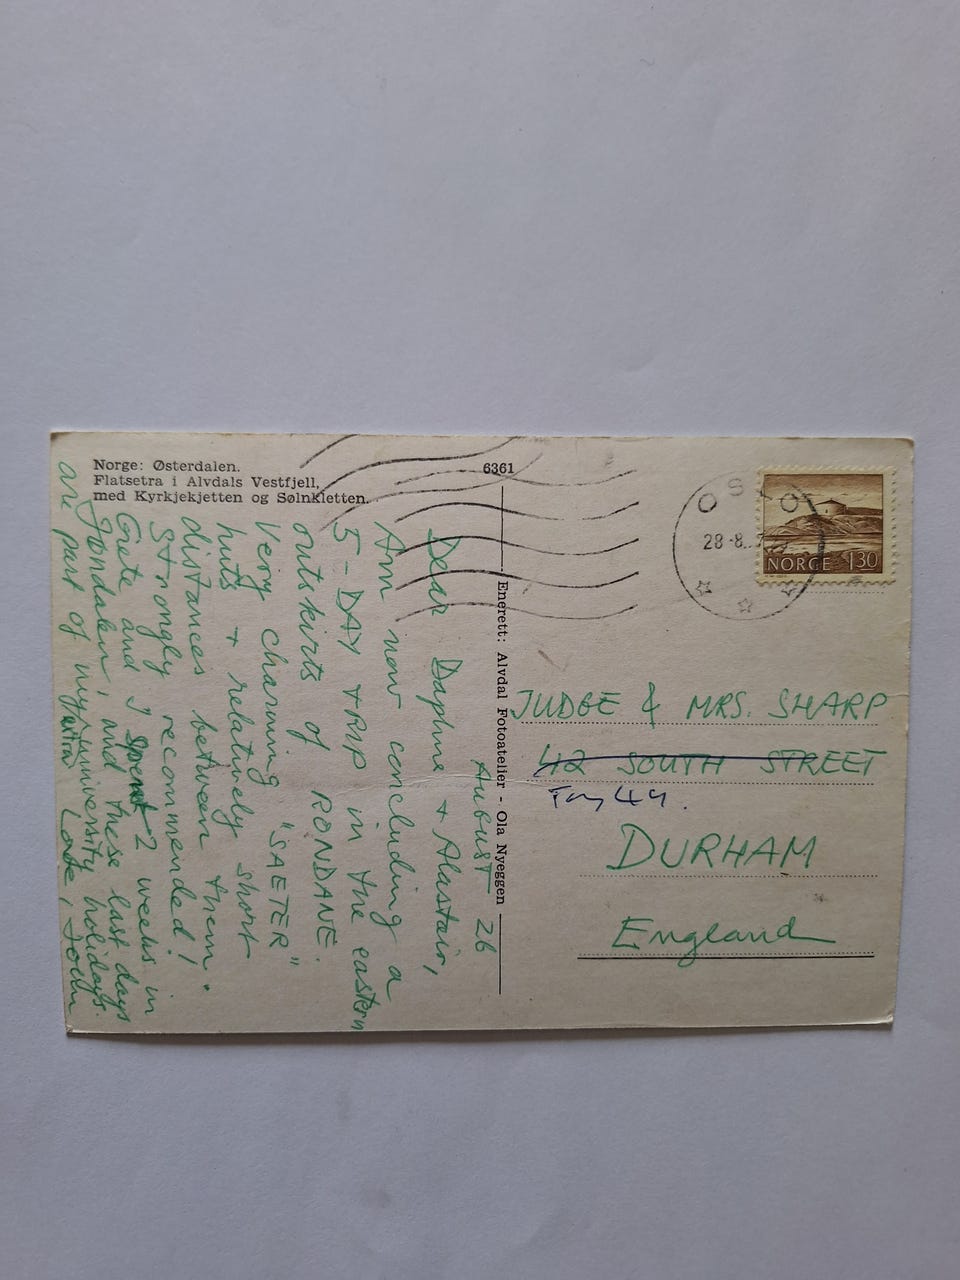 Norge: Østerdalen.
Flatsetra i Alvdals Vestfjell,
med Kyrkjekjetten og Sølnkletten.
6361
Enerett: Alvdal Fotoatelier - Ola Nyeggen
OSLO
28-8
NORGE 130
AUGUST 26
Dear Daphne + Alastair,
Am now concluding a
5-DAY TRIP in the eastern
outskirts of RONDANE.
Very charming "SAETER"
huts + relatively short
distances between them.
Strongly recommended!
Grete and I spent 2 weeks in
Jondalen, and these last days
are part of my university holidays.
extra Love, John
JUDGE & MRS. SHARP
42 SOUTH STREET
DURHAM,
England